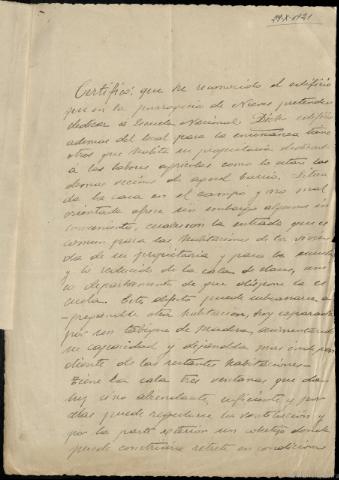 29-X-1921
Certifico: que he reconocido el edificio
que en la parroquia de Nieves pretenden
dedicar á Escuela Nacional. Dicho edificio
ademas del local para la enseñanza tiene
otros que habita su propietaria dedicada
á las labores agrícolas como lo están los
demas vecinos de aquel barrio. Situa
da la casa en el campo y no mal
orientada ofrece sin embargo algunos in
convenientes, cuales son la entrada que es
comun para las habitaciones de la vivien
da de su propietaria y para la escuela
y lo reducido de la sala de clases, uni
co departamento de que dispone la es
cuela. Este defecto puede subsanarse a
gregandole otra habitacion, hoy separada
por un tabique de madera, aumentando
su capacidad y dejandola mas indepen
diente de las restantes habitaciones.
Tiene la sala tres ventanas que dan
luz sino abundante, suficiente y por
ellas puede regularse la ventilación y
por la parte exterior un cobertizo donde
puede construirse retrete en condiciones